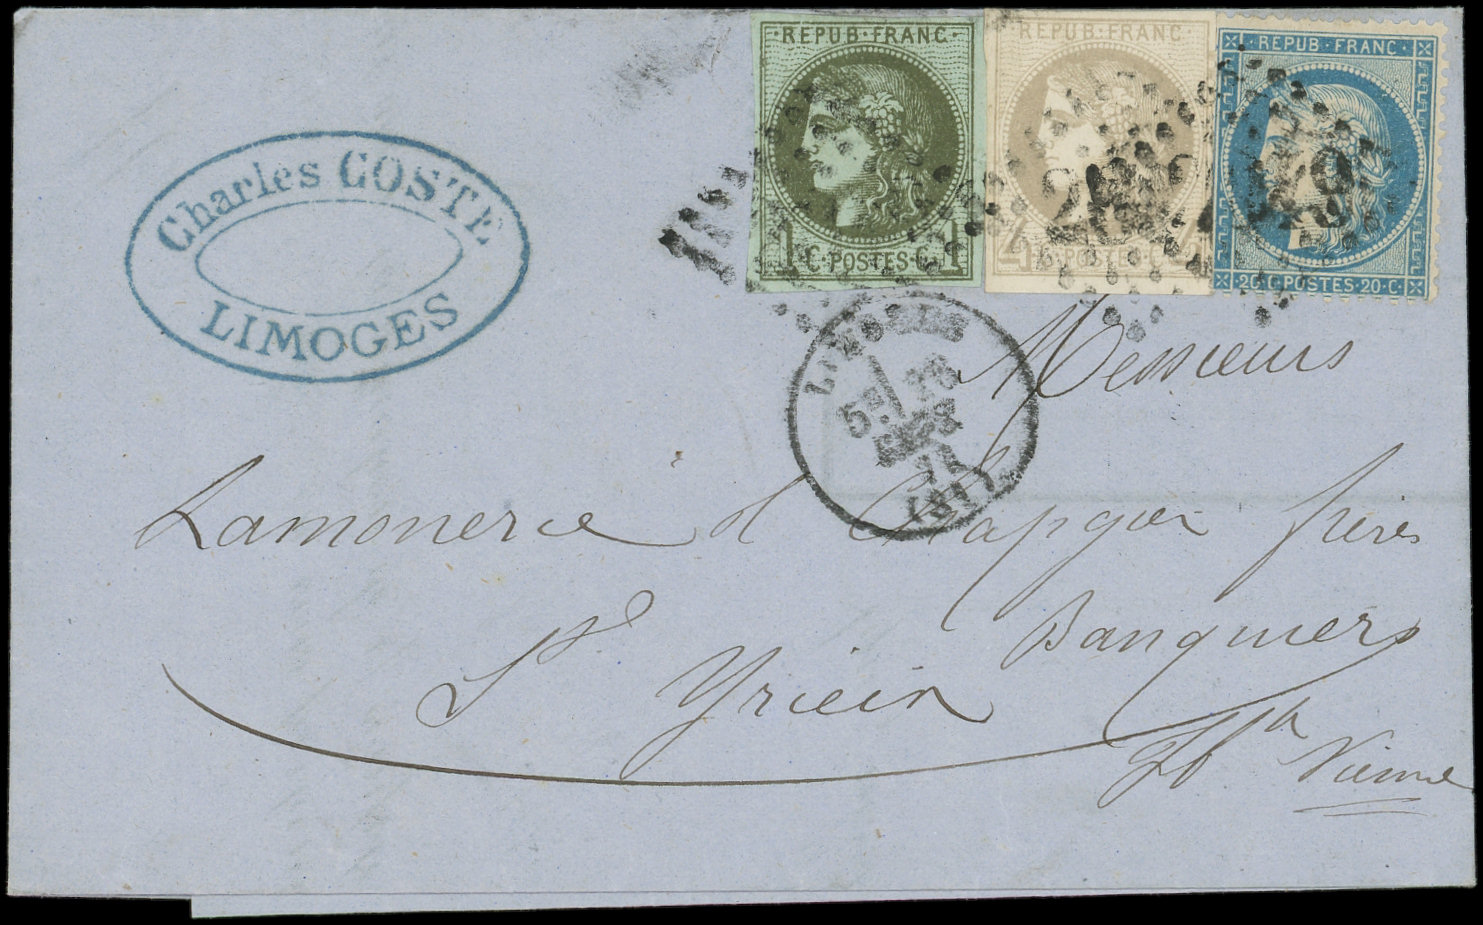 REPUB·FRANC·
1 C·POSTES·C 1
REPUB·FRANC
4 POSTES·C 4
REPUB·FRANC
20·C·POSTES·20·C
Charles COSTE
LIMOGES
LIMOGES
5E/ 26
71
(81)
Messieurs
Lamonerie & Chapgier frères
Banquiers
St Yrieix
Hte Vienne